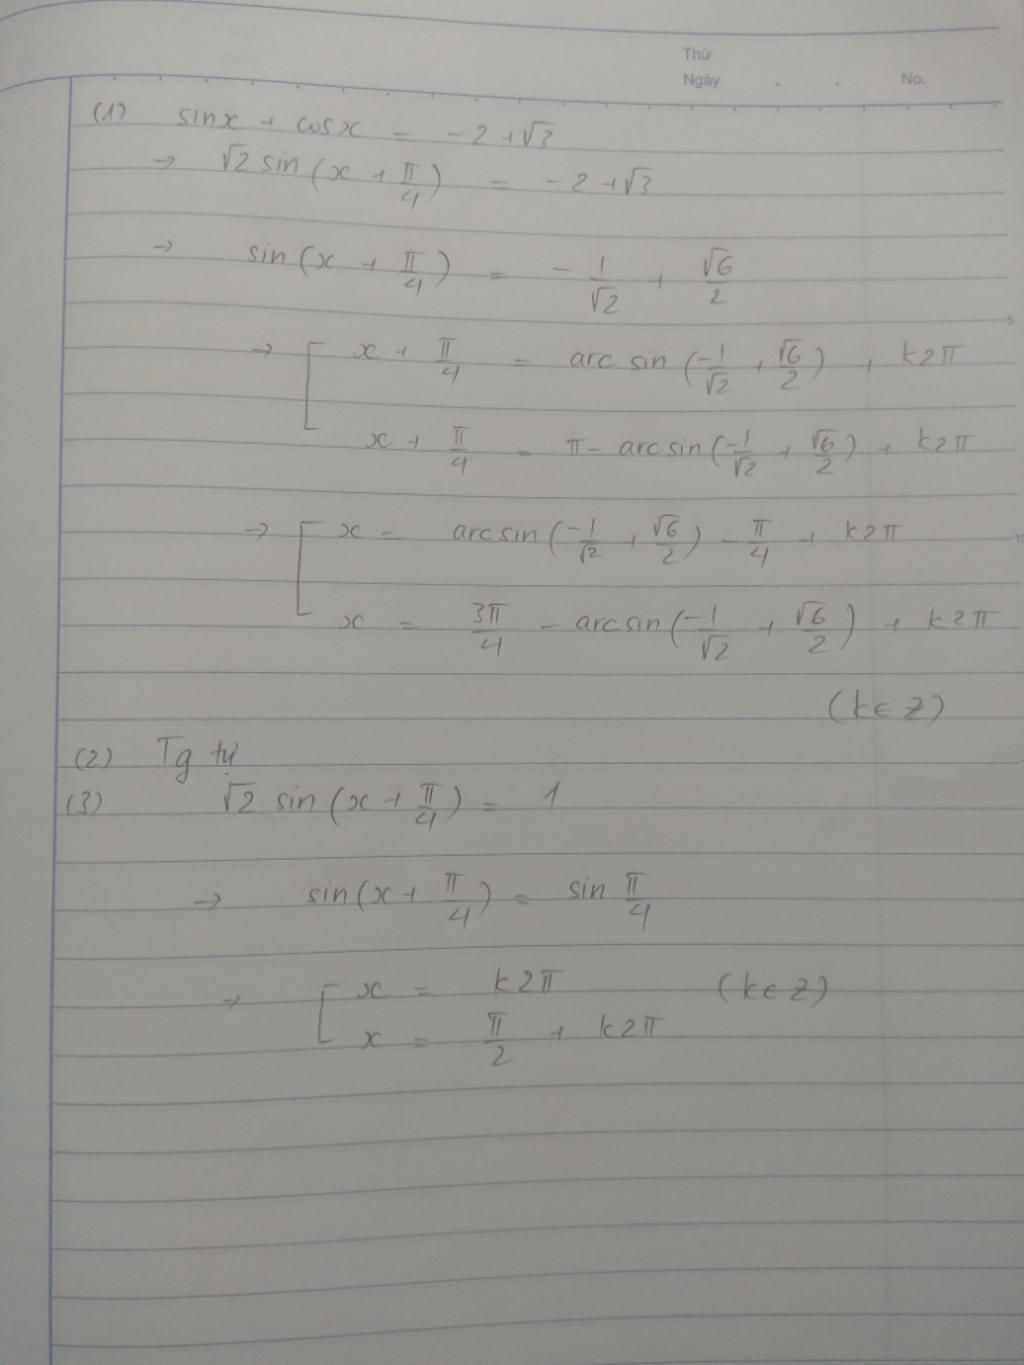 Thứ
Ngày . . No.
(1) sinx + cosx = -2 + √3
→ √2 sin(x + π/4) = -2 + √3
→ sin(x + π/4) = - 1/√2 + √6/2
5
→ [ x + π/4 = arc sin(-1/√2 + √6/2) + k2π
x + π/4 = π - arcsin(-1/√2 + √6/2) + k2π
→ [ x = arcsin(-1/√2 + √6/2) - π/4 + k2π
10
x = 3π/4 - arcsin(-1/√2 + √6/2) + k2π
(k∈Z)
(2) Tg tự
(3) √2 sin(x + π/4) = 1
→ sin(x + π/4) = sin π/4
→ [ x = k2π (k∈Z)
x = π/2 + k2π